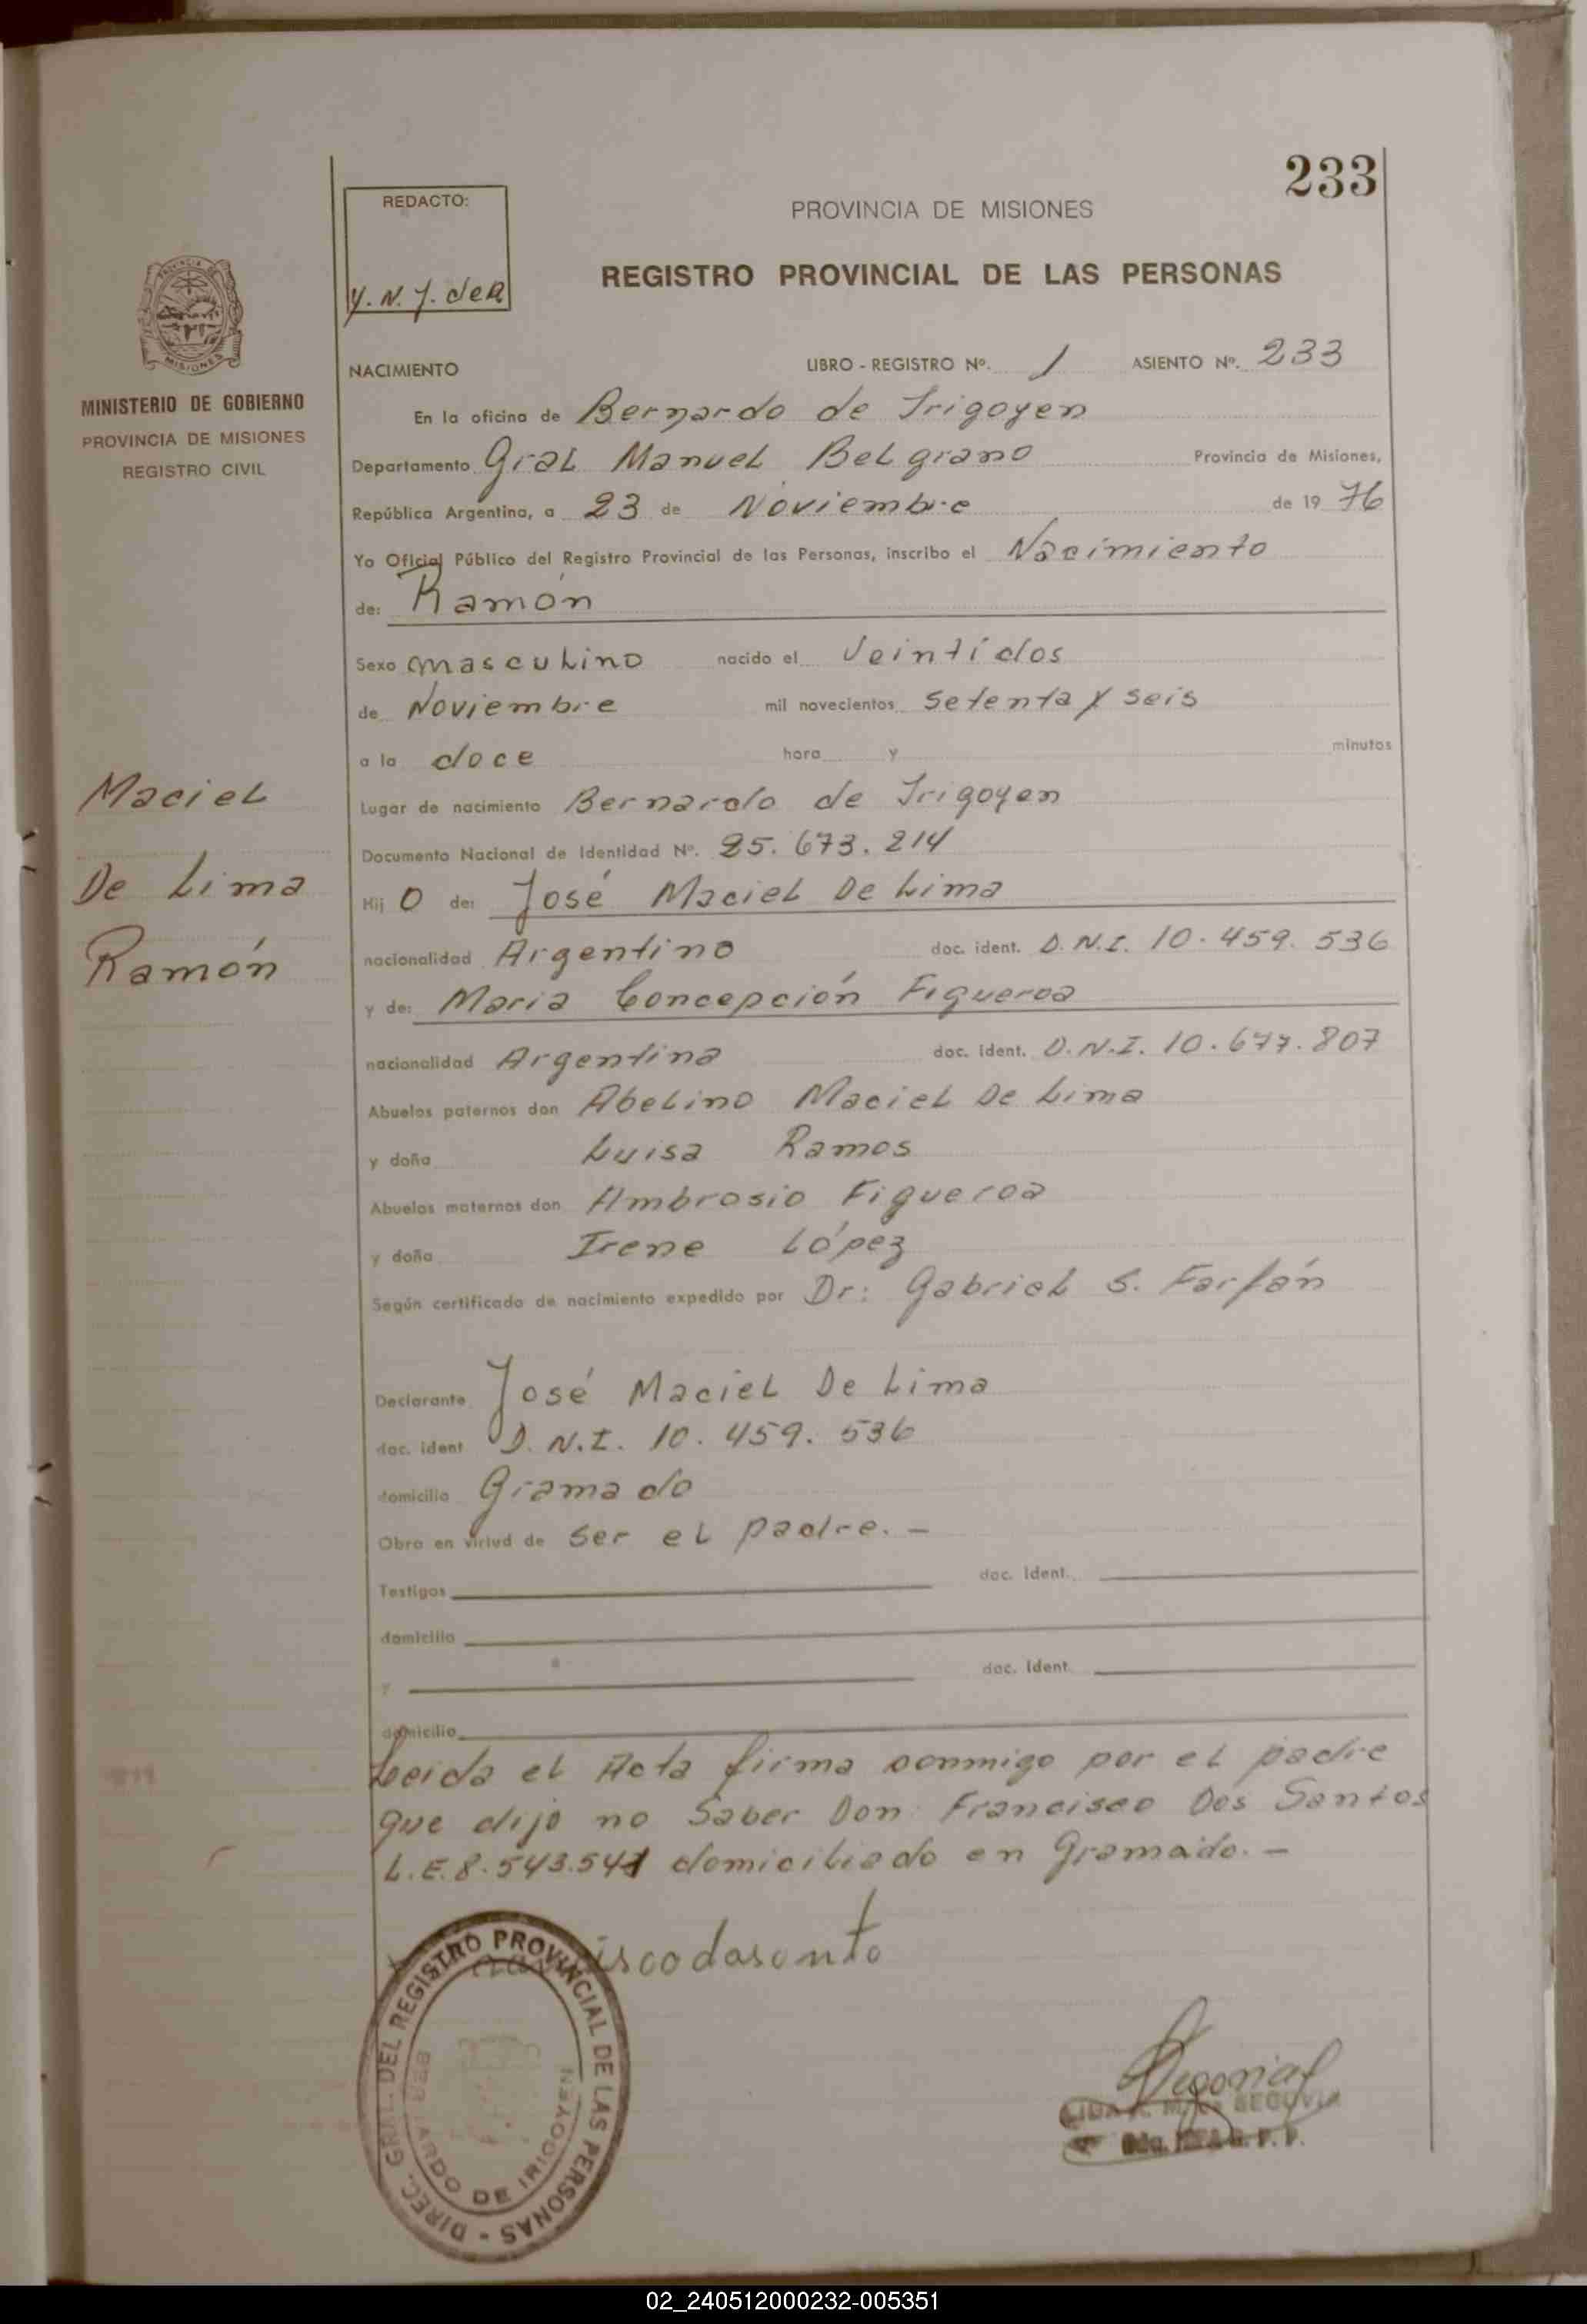 233
REDACTO:
Y. N. J. deR
PROVINCIA DE MISIONES
REGISTRO PROVINCIAL DE LAS PERSONAS
MISIONES
MINISTERIO DE GOBIERNO
PROVINCIA DE MISIONES
REGISTRO CIVIL
NACIMIENTO LIBRO - REGISTRO Nº. 1 ASIENTO Nº. 233
En la oficina de Bernardo de Irigoyen
Departamento Gral Manuel Belgrano Provincia de Misiones,
República Argentina, a 23 de Noviembre de 19 76
Yo Oficial Público del Registro Provincial de las Personas, inscribo el Nacimiento
de: Ramón
Sexo masculino nacido el Veintidos
de Noviembre mil novecientos setenta y seis
a la doce hora y minutos
Maciel
De Lima
Ramón
Lugar de nacimiento Bernardo de Irigoyen
Documento Nacional de Identidad Nº. 25.673.214
Hij o de: José Maciel De Lima
nacionalidad Argentino doc. ident. D.N.I. 10.459.536
y de: Maria Concepción Figueroa
nacionalidad Argentina doc. ident. D.N.I. 10.677.807
Abuelos paternos don Abelino Maciel De Lima
y doña Luisa Ramos
Abuelos maternos don Ambrosio Figueroa
y doña Irene López
Según certificado de nacimiento expedido por Dr: Gabriel S. Farfán
Declarante José Maciel De Lima
doc. ident D.N.I. 10.459.536
domicilio Gramado
Obra en virtud de ser el padre. -
Testigos doc. ident.
domicilio
y doc. ident.
domicilio
Leida el Acta firma conmigo por el padre
que dijo no Saber Don: Francisco Dos Santos
L.E. 8.543.541 domiciliado en Gramado. -
DIREC. GRAL. DEL REGISTRO PROVINCIAL DE LAS PERSONAS -
BERNARDO DE IRIGOYEN
SEGOVIA
02_240512000232-005351